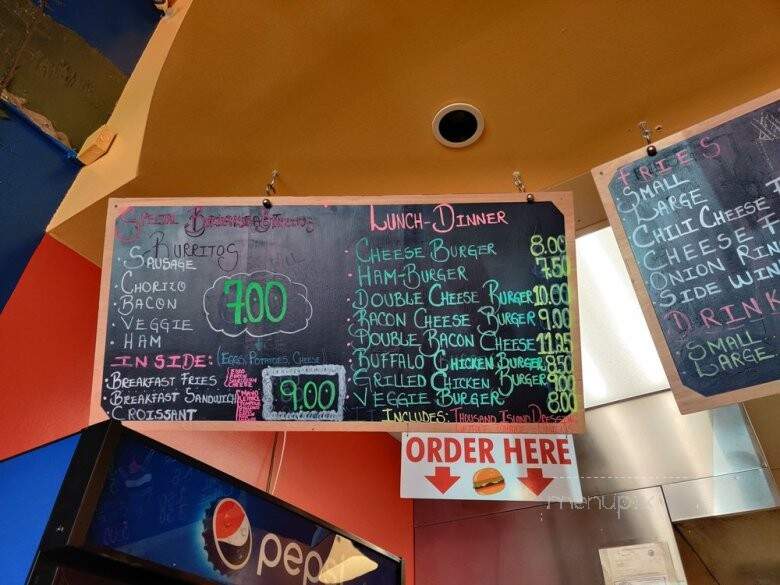 SPECIAL
BURRITOS
• SAUSAGE
• CHORIZO
• BACON
• VEGGIE
• HAM
7.00
INSIDE: (EGGS, POTATOES, CHEESE)
• BREAKFAST FRIES
• BREAKFAST SANDWICH
• CROISSANT
9.00
LUNCH-DINNER
• CHEESE BURGER 8.00
• HAM-BURGER 7.50
• DOUBLE CHEESE BURGER 10.00
• BACON CHEESE BURGER 9.00
• DOUBLE BACON CHEESE 11.25
• BUFFALO CHICKEN BURGER 8.50
• GRILLED CHICKEN BURGER 9.00
• VEGGIE BURGER 8.00
INCLUDES: THOUSAND ISLAND DRESSING
FRIES
• SMALL
• LARGE
CHILI CHEESE
CHEESE F
ONION RIN
SIDE WIN
DRINK
• SMALL
LARGE
ORDER HERE
pepsi
menupix